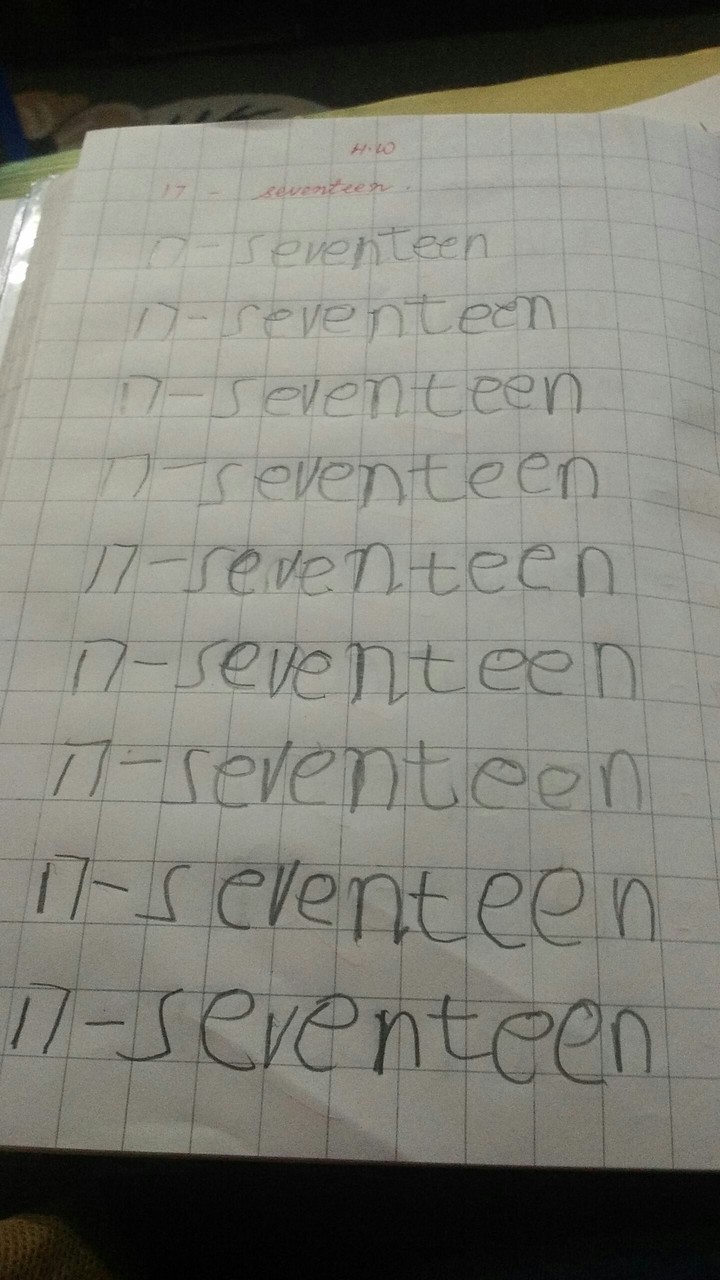 H.W
17 - seventeen.
17-seventeen
17-seventeen
17-seventeen
17-seventeen
17-seventeen
17-seventeen
17-seventeen
17-seventeen
17-seventeen